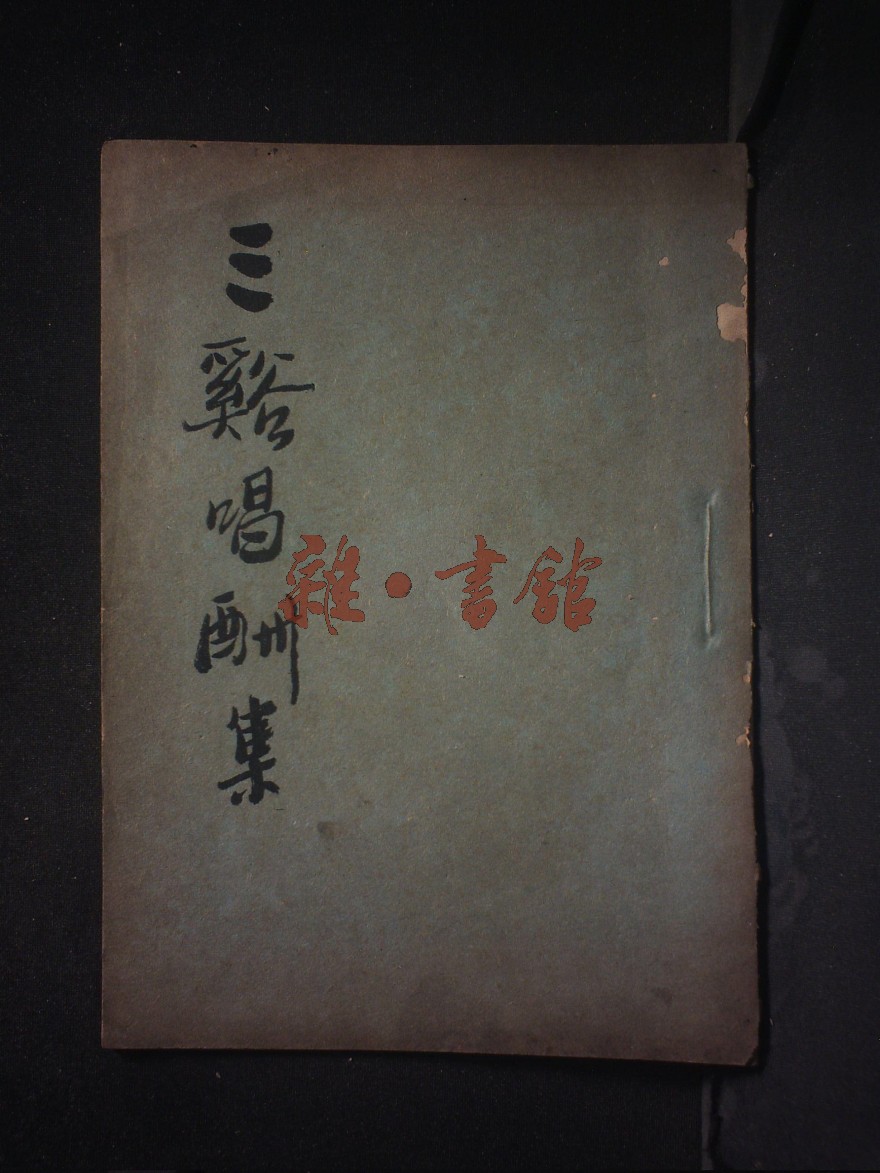 三谿唱酬集
雜·書館